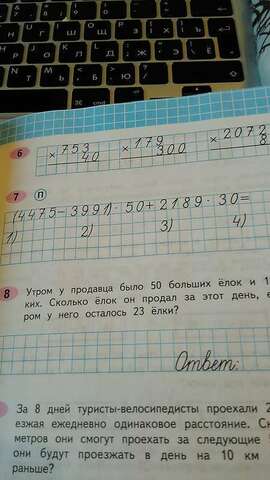 6 × 753 × 179 × 2072
40 300 8
7 П
(4475-3991)·50+2189·30=
1) 2) 3) 4)
8 Утром у продавца было 50 больших ёлок и 1
ких. Сколько ёлок он продал за этот день, е
ром у него осталось 23 ёлки?
Ответ:
За 8 дней туристы-велосипедисты проехали 2
езжая ежедневно одинаковое расстояние. Ск
метров они смогут проехать за следующие
они будут проезжать в день на 10 км
раньше?